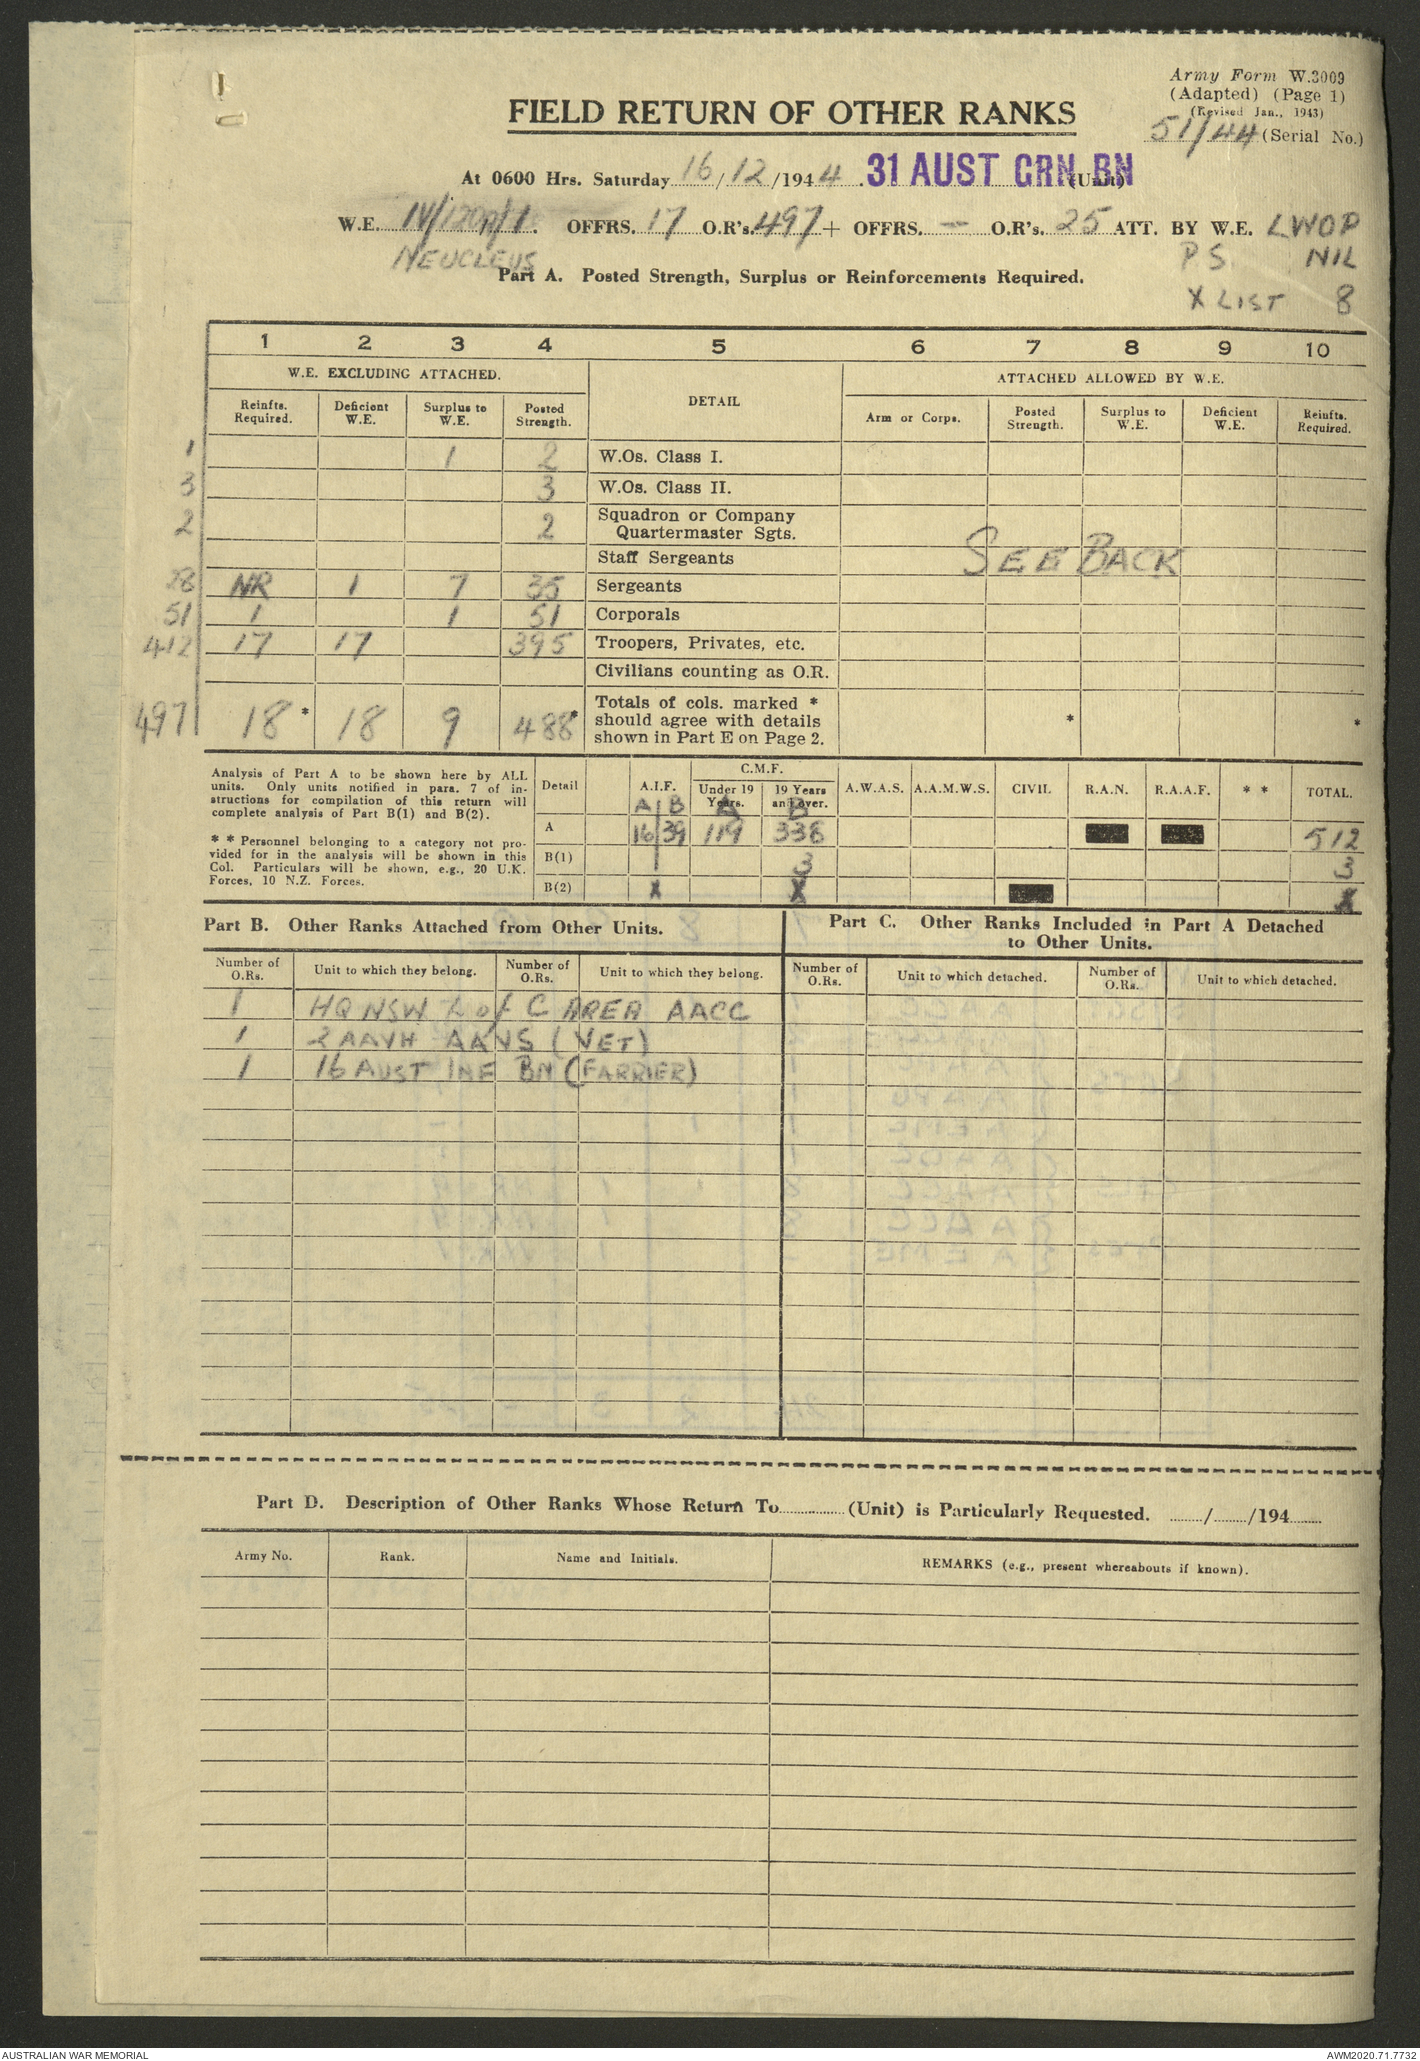 Army Form W.3009
(Adapted) (Page 1)
(Revised Jan., 1943)
51/44 (Serial No.)
FIELD RETURN OF OTHER RANKS
At 0600 Hrs. Saturday 16/12/1944. 31 AUST GRN BN (Unit)
W.E. OFFRS. 17 O.R's. 497 + OFFRS. — O.R's. 25 ATT. BY W.E. LWOP
NEUCLEUS P.S. NIL
Part A. Posted Strength, Surplus or Reinforcements Required.
X LIST 8
1 2 3 4 5 6 7 8 9 10
W.E. EXCLUDING ATTACHED. DETAIL ATTACHED ALLOWED BY W.E.
Reinfts. Required. Deficient W.E. Surplus to W.E. Posted Strength. Arm or Corps. Posted Strength. Surplus to W.E. Deficient W.E. Reinfts. Required.
1 1 2 W.Os. Class I.
3 3 W.Os. Class II.
2 2 Squadron or Company
Quartermaster Sgts.
Staff Sergeants SEE BACK
28 NR 1 7 35 Sergeants
51 1 1 51 Corporals
412 17 17 395 Troopers, Privates, etc.
Civilians counting as O.R.
497 18 * 18 9 488 * Totals of cols. marked *
should agree with details * *
shown in Part E on Page 2.
Analysis of Part A to be shown here by ALL
units. Only units notified in para. 7 of in-
structions for compilation of this return will
complete analysis of Part B(1) and B(2).
* * Personnel belonging to a category not pro-
vided for in the analysis will be shown in this
Col. Particulars will be shown, e.g., 20 U.K.
Forces, 10 N.Z. Forces.
Detail A.I.F. C.M.F. A.W.A.S. A.A.M.W.S. CIVIL R.A.N. R.A.A.F. * * TOTAL.
Under 19 Years. 19 Years and over.
A B A B
A 16 39 119 338 512
B(1) 3 3
B(2) X X X
Part B. Other Ranks Attached from Other Units.
Part C. Other Ranks Included in Part A Detached
to Other Units.
Number of O.Rs. Unit to which they belong. Number of O.Rs. Unit to which they belong. Number of O.Rs. Unit to which detached. Number of O.Rs. Unit to which detached.
1 HQ NSW L of C AREA AACC
1 2 AAVH AAVS (VET)
1 16 AUST INF BN (FARRIER)
Part D. Description of Other Ranks Whose Return To (Unit) is Particularly Requested. / /194
Army No. Rank. Name and Initials. REMARKS (e.g., present whereabouts if known).
AUSTRALIAN WAR MEMORIAL AWM2020.71.7732